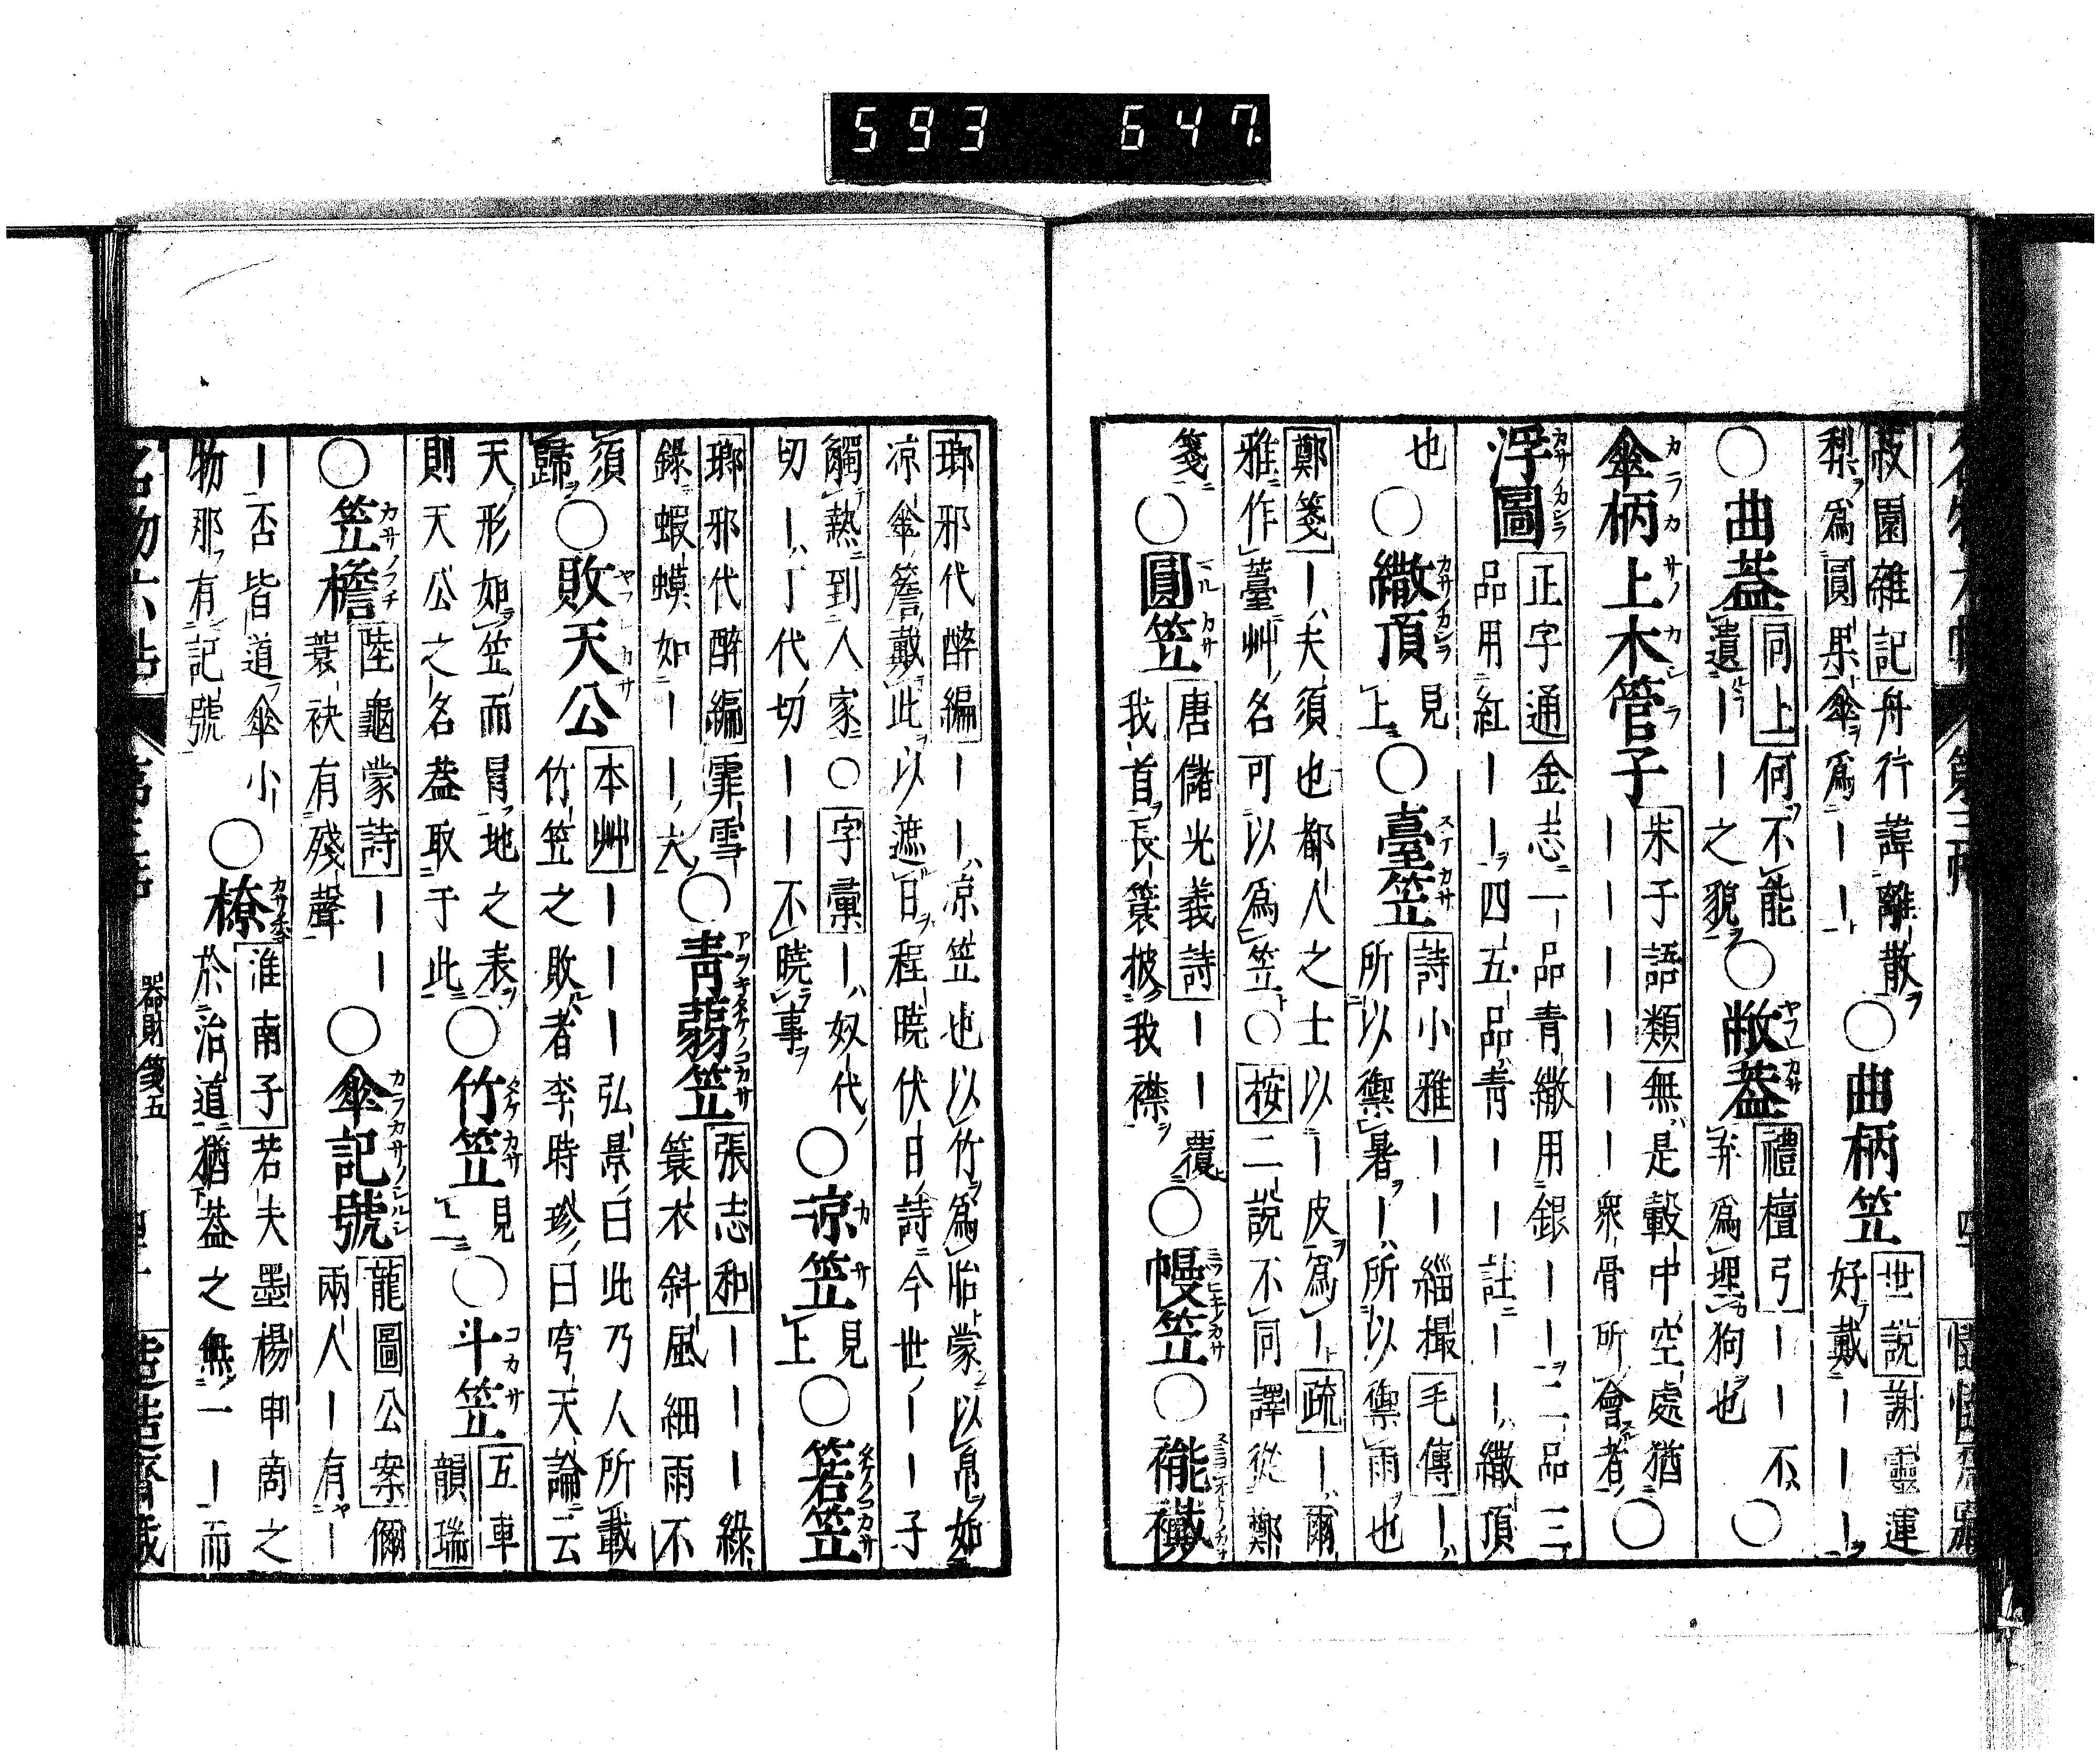 593 647
菽園雜記舟行諱離散
梨爲圓果傘爲——
○曲柄笠
世説謝靈運
好戴———
○曲葢
同上何不能
遺——之貌
○敝葢
禮檀弓——不
弃爲埋狗也
○傘柄上木管子
朱子語類無是轂中空處猶
—————衆骨所會者
○浮圖
正字通金志一品青繖用銀——二品三
品用紅——四五品青——註——繖頂
也
○繖頂
見上
○臺笠
詩小雅——緇撮毛傳—
所以禦暑—所以禦雨也
鄭箋—夫須也都人之士以—皮爲—疏—爾
雅作薹艸名可以爲笠○按二説不同譯從鄭
箋
○圓笠
唐儲光義詩——覆
我首長簑披我襟
○幔笠
○襹襶
瑯邪代醉編——凉笠也以竹爲胎蒙以帛如
凉傘簷戴此以遮日程曉伏日詩今世——子
觸熱到人家○字彙—奴代
切—丁代切——不曉事
○凉笠
見上
○箬笠
瑯邪代醉編霏雪
錄蝦蟆如——大
○青蒻笠
張志和———綠
簑衣斜風細雨不
須歸
○敗天公
本艸———弘景曰此乃人所戴
竹笠之敗者李時珍曰穹天論云
天形如笠而冒地之表
則天公之名葢取于此
○竹笠
見上
○斗笠
五車
韻瑞
○笠檐
陸龜蒙詩——
蓑袂有殘聲
○傘記號
龍圖公案儞
兩人—有—
—否皆道傘小
物那有記號
○橑
淮南子若夫墨楊申商之
於治道猶葢之無一—而
器財箋五